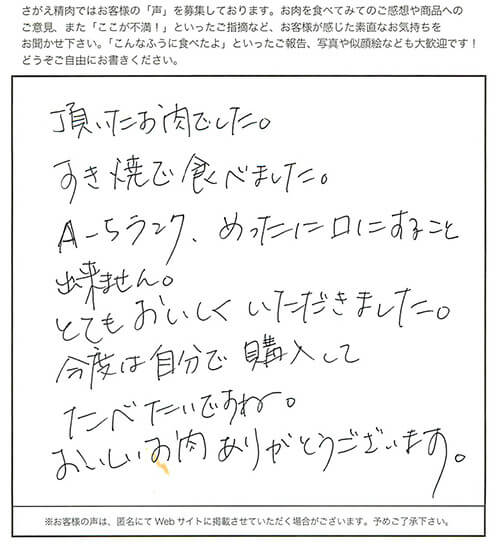 さがえ精肉ではお客様の「声」を募集しております。お肉を食べてみてのご感想や商品への
ご意見、また「ここが不満！」といったご指摘など、お客様が感じた素直なお気持ちを
お聞かせ下さい。「こんなふうに食べたよ」といったご報告、写真や似顔絵なども大歓迎です！
どうぞご自由にお書きください。
頂いたお肉でした。
すき焼で食べました。
A-5ランク、めったに口にすること
出来ません。
とてもおいしくいただきました。
今度は自分で購入して
たべたいですね。
おいしいお肉ありがとうございます。
※お客様の声は、匿名にてWebサイトに掲載させていただく場合がございます。予めご了承下さい。